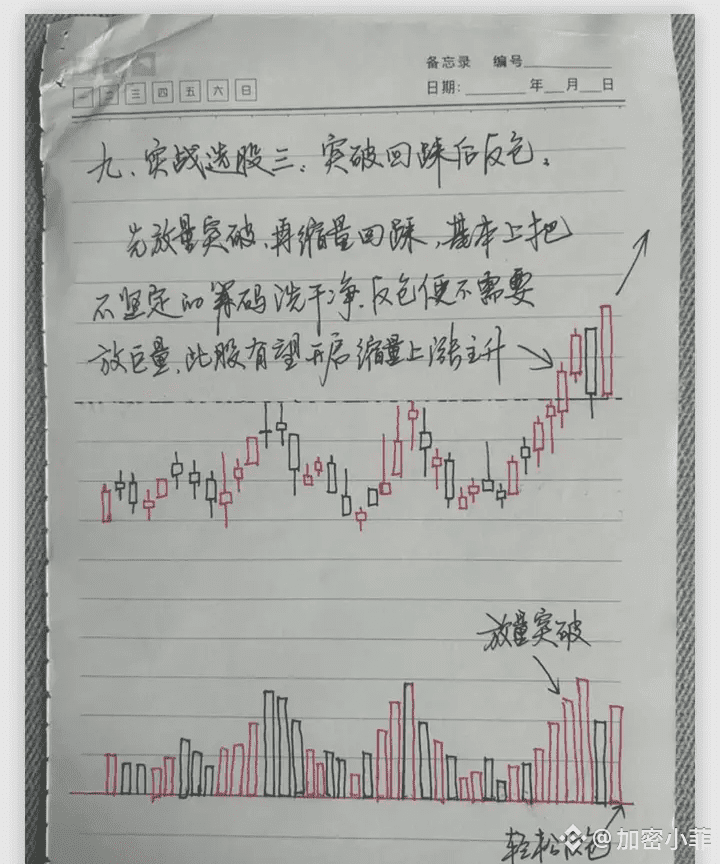 备忘录 编号
一 二 三 四 五 六 日
日期: 年 月 日
九、实战选股三:突破回踩后反包。
先放量突破,再缩量回踩,基本上把
不坚定的筹码洗干净,反包便不需要
放巨量,此股有望开启缩量上涨主升
放量突破
轻松反包
@加密小菲